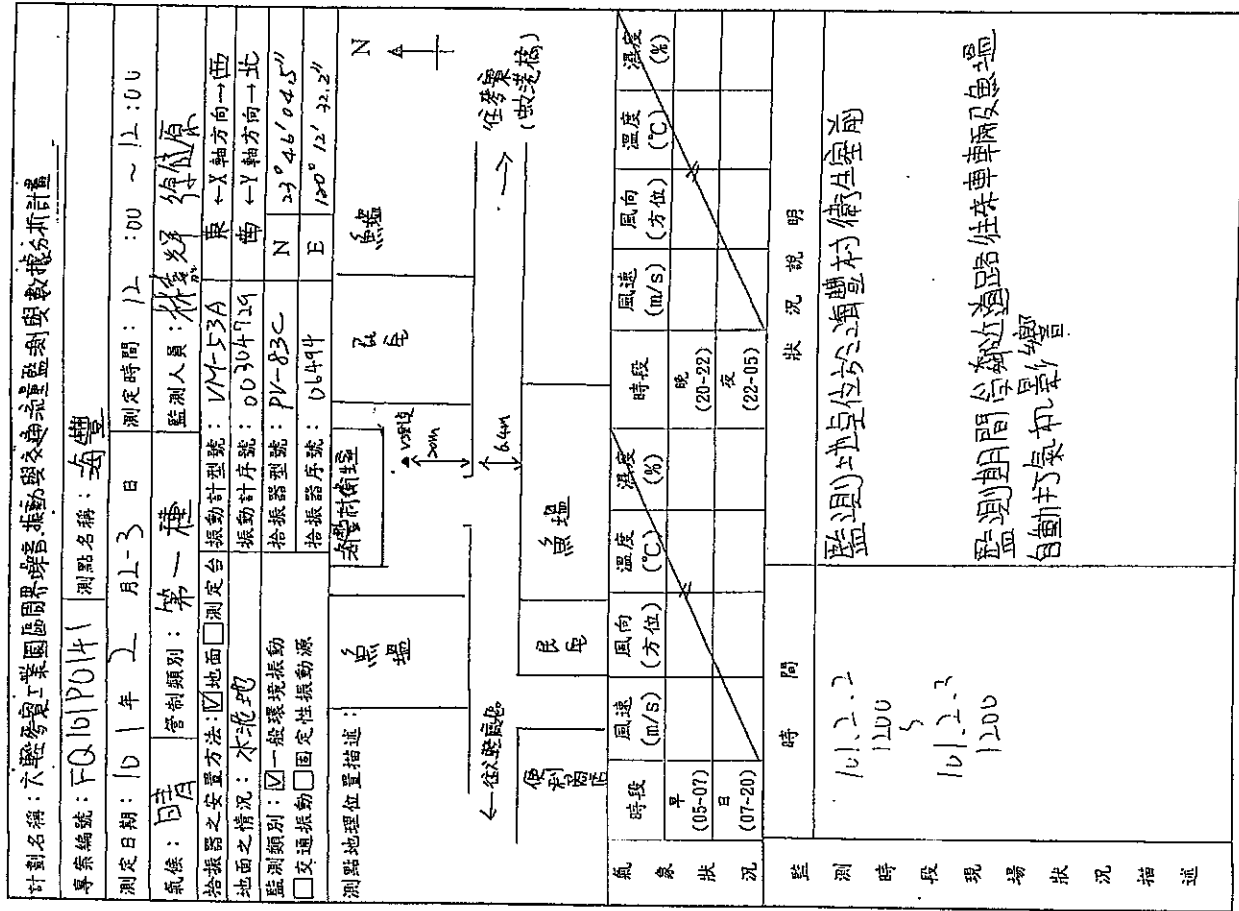 計劃名稱：六輕麥寮工業園區周界噪音.振動與交通流量監測與數據分析計畫
專案編號：FQ101P0141 測點名稱：海豐
測定日期：101年2月2-3日 測定時間：12:00～12:00
氣候：晴 管制類別：第一種 監測人員：
拾振器之安置方法：☑地面□測定台 振動計型號：VM-53A 東←X軸方向→西
地面之情況：水泥地 振動計序號：00304729 南←Y軸方向→北
監測類別：☑一般環境振動 拾振器型號：PV-83C N 23°46'04.5"
□交通振動□固定性振動源 拾振器序號：06494 E 120°12'32.2"
測點地理位置描述：
N
海豐村衛生室
魚塭
民宅
魚塭
20m
6.4m
←往六輕
→
往麥寮
(蚊港橋)
便利商店
民宅
魚塭
氣象狀況
時段 風速(m/s) 風向(方位) 溫度(℃) 濕度(%) 時段 風速(m/s) 風向(方位) 溫度(℃) 濕度(%)
早(05-07) 晚(20-22)
日(07-20) 夜(22-05)
監測時段現場狀況描述
時間 狀況說明
101.2.2
1200
101.2.3
1200
監測地點位於海豐村衛生室前
監測期間受鄰近道路往來車輛及魚塭
自動打氣机影響